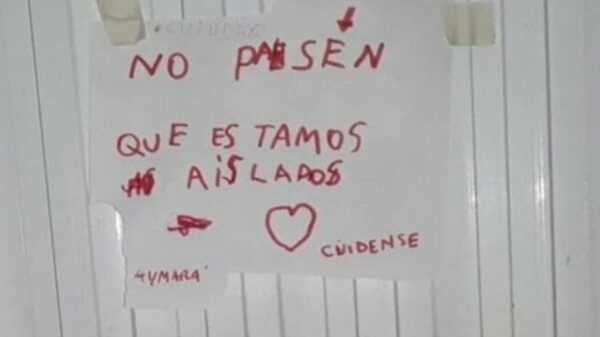 NO PASÉN
QUE ES TAMOS
AISLADOS
CÜIDENSE
AYMARÁ